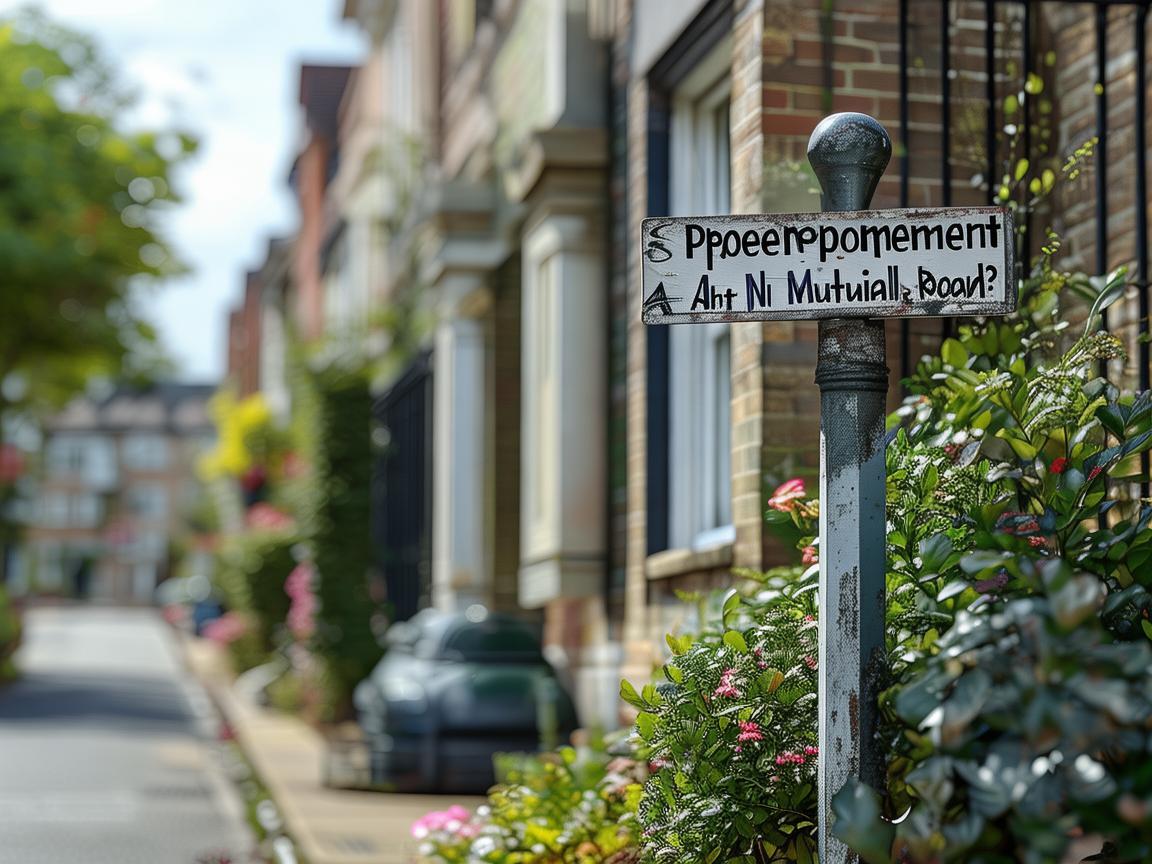 S Ppoeerpomement
A Aht Ni Mutuiall Road?